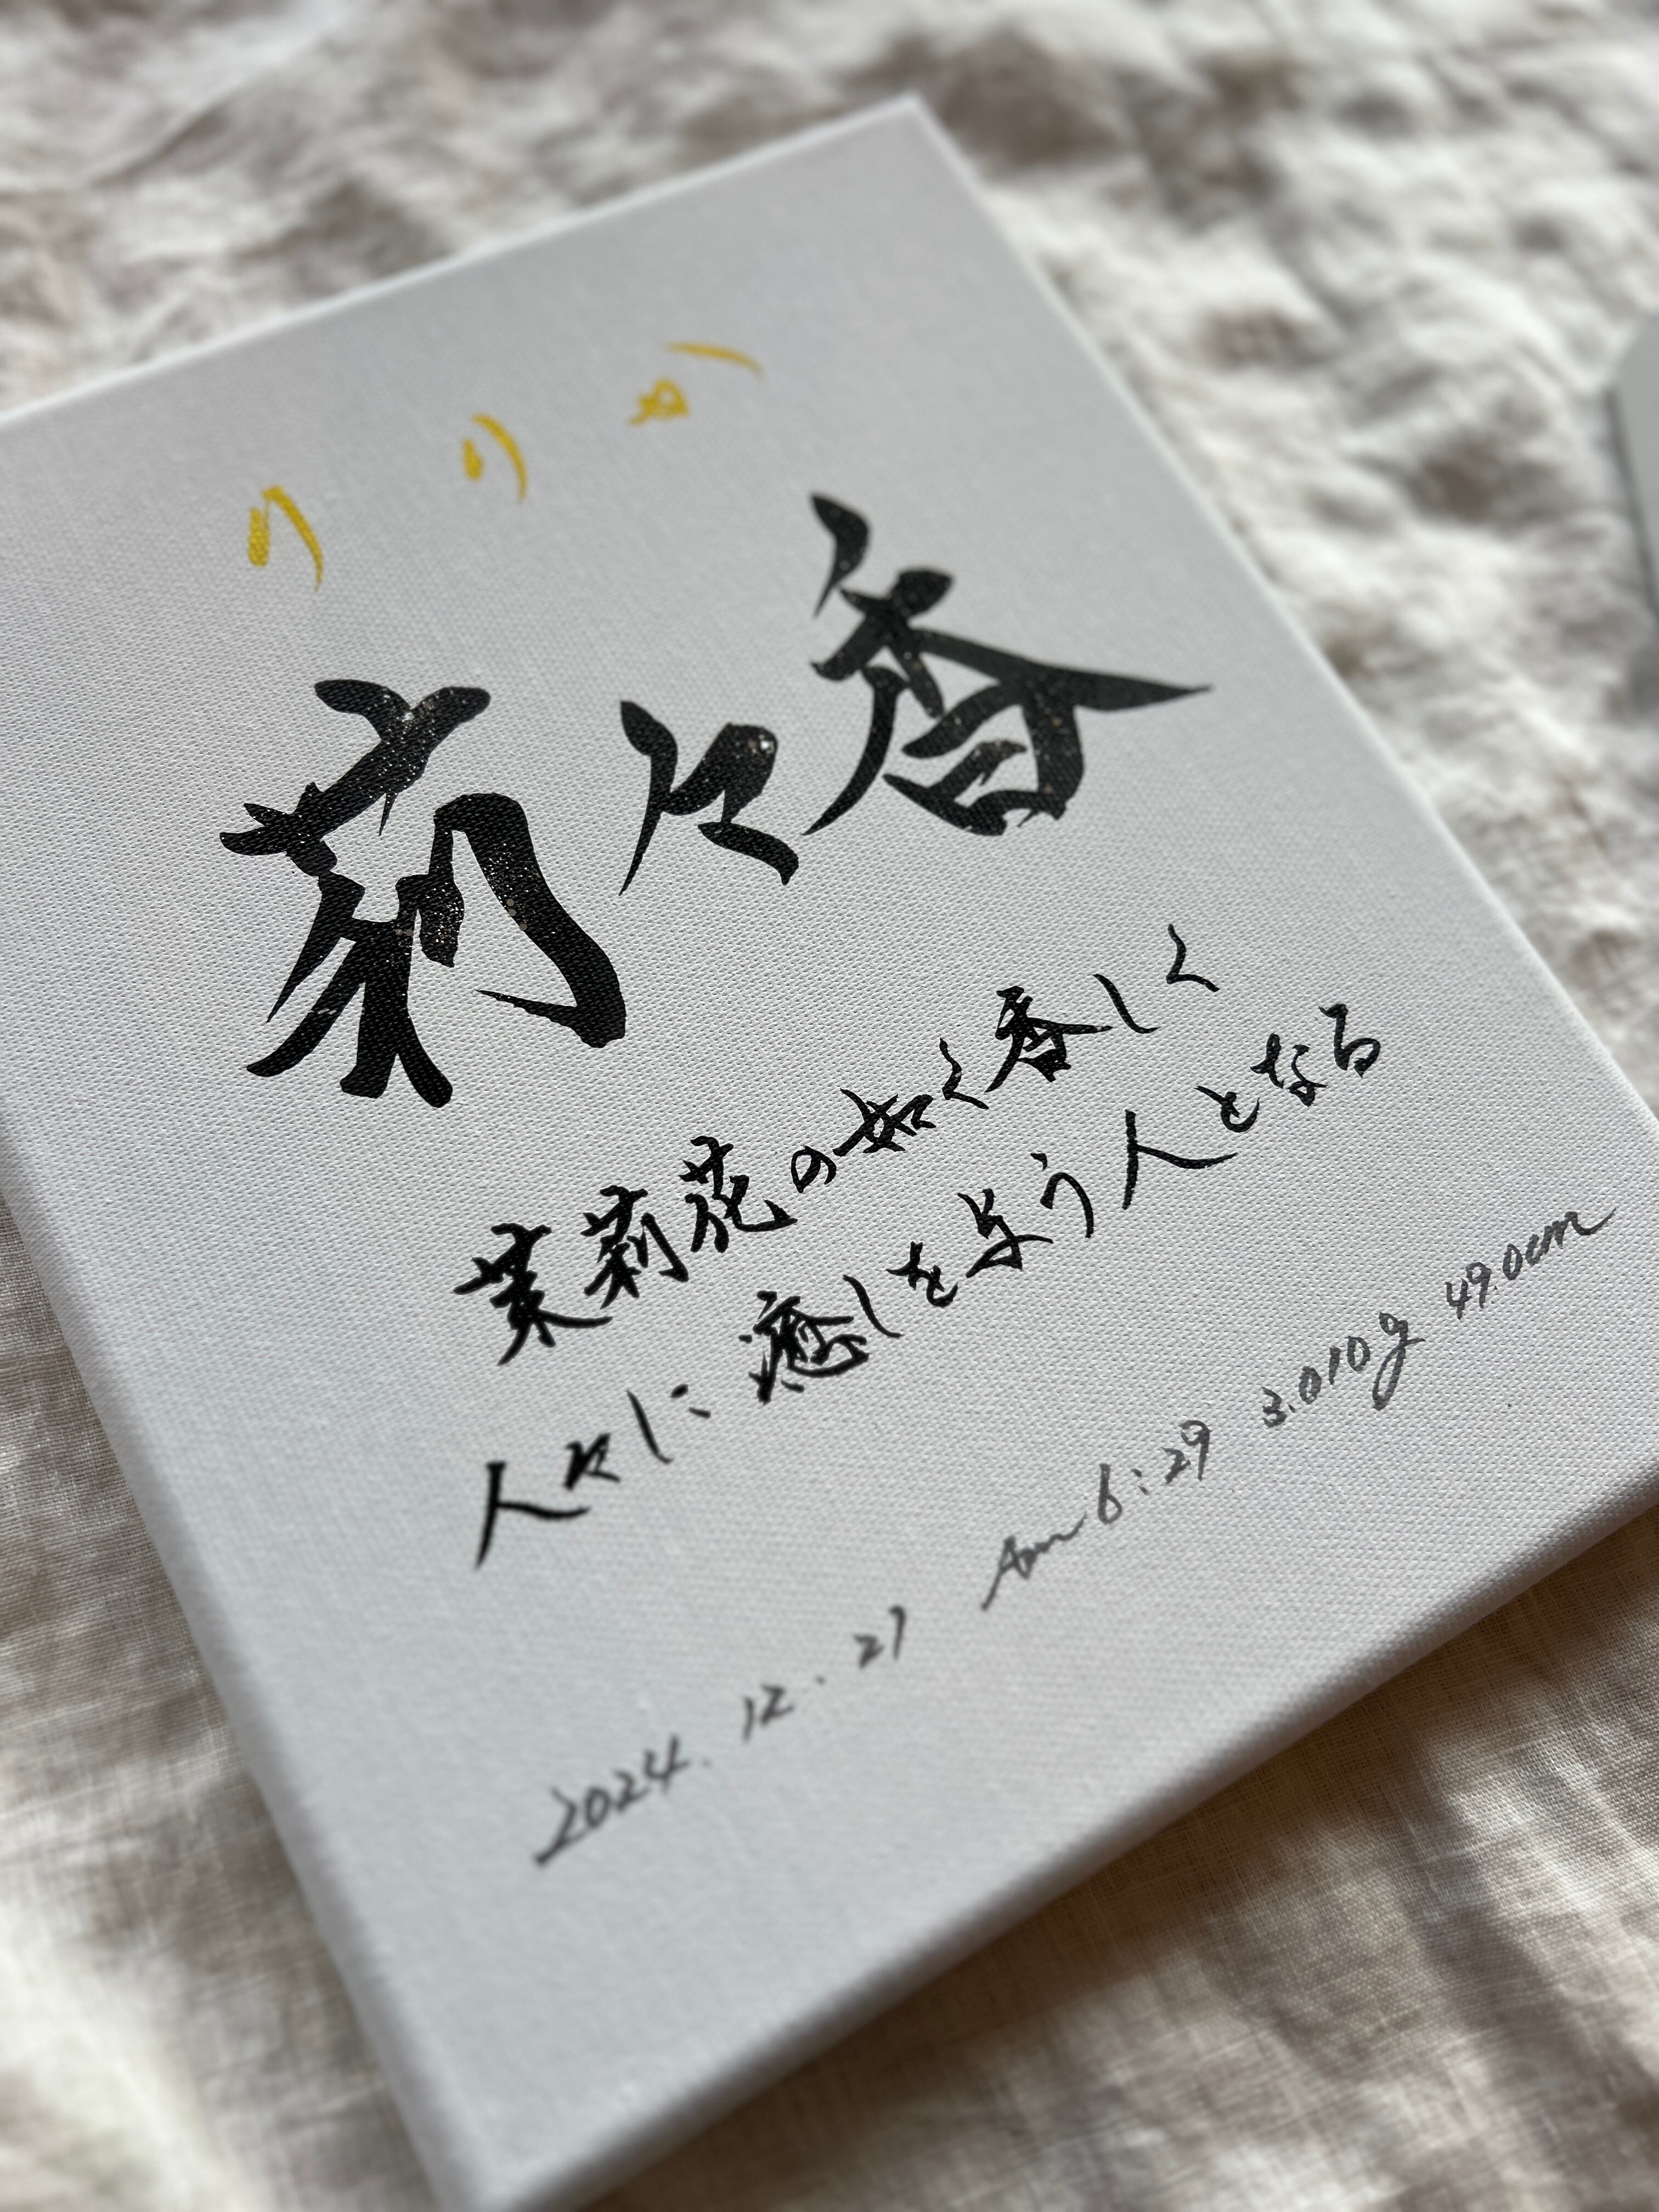 りりか
莉々香
茉莉花の如く香しく
人々に癒しを与う人となる
2024.12.21 Am 6:29 3.010g 49.0cm